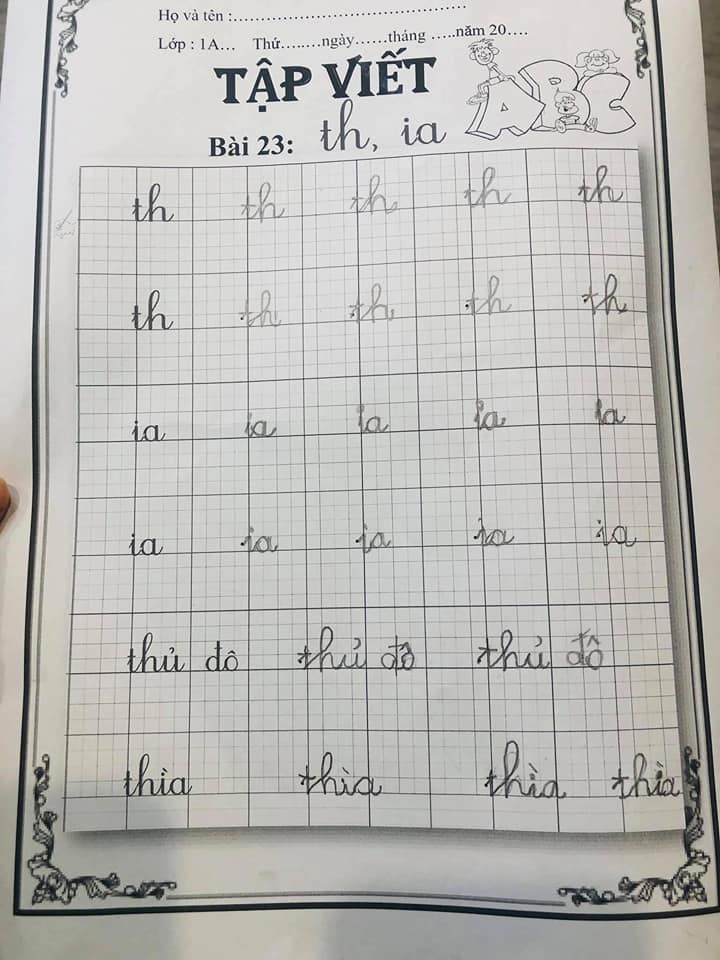 Họ và tên :..................................................
Lớp : 1A... Thứ........ngày......tháng .....năm 20....
TẬP VIẾT
ABC
Bài 23: th, ia
th th th th th
th th th th th
ia ia ia ia ia
ia ia ia ia ia
thủ đô thủ đô thủ đô
thìa thìa thìa thìa